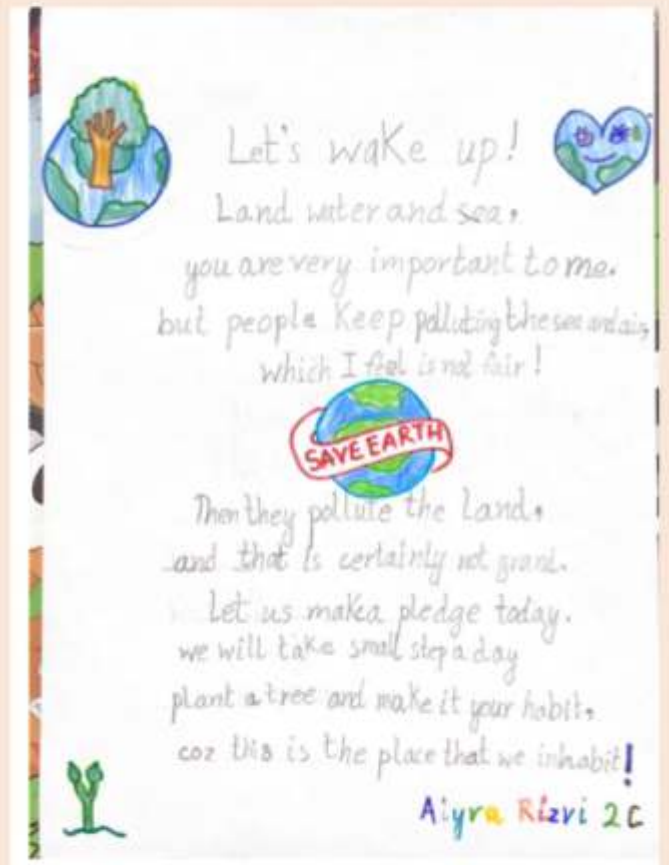 Let's wake up!
Land water and sea,
you are very important to me.
but people keep polluting the see and air,
which I feel is not fair!
SAVE EARTH
Then they pollute the land,
and that is certainly not grand.
Let us make a pledge today.
we will take small step a day
plant a tree and make it your habit,
coz this is the place that we inhabit!
Aiyra Rizvi 2C